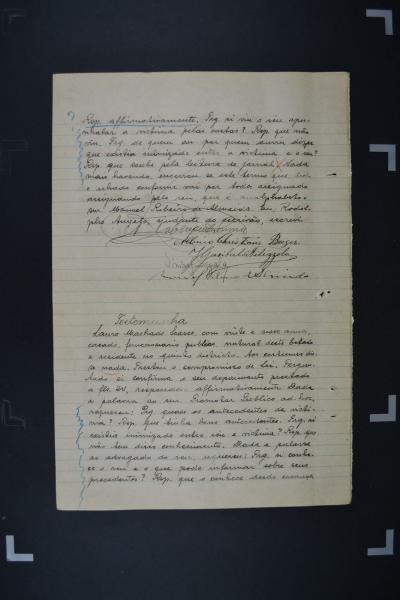 Resp. affirmativamente. Prg. si viu o réu apu-
nhalar a victima pelas costas? Resp. que não
viu. Prg. de quem ou por quem ouviu dizer
que existia inimizade entre a victima e o réu?
Resp. que soube pela leitura de jornal. Nada
mais havendo, encerrou-se este termo que lido
e achado conforme vai por todos assignado
assignando pelo réu, que é analphabeto
por Manoel Ribeiro de Almeida. Eu, Rodol-
pho Augusto, ajudante do escrivão, escrevi
Testemunha
Lauro Machado Soares, com vinte e nove annos,
casado, funccionario publico, natural deste Estado
e residente no quinto districto. Aos costumes dis-
se nada. Prestou o compromisso de lei. Pergun-
tado si confirma o seu depoimento prestado
a fls. respondeu affirmativamente. Dada
a palavra ao snr. Promotor Publico ad-hoc,
requereu: Prg. quaes os antecedentes da victi-
ma? Resp. que tinha bons antecedentes. Prg. si
existia inimizade entre réu e victima? Resp. que
não tem disso conhecimento. Dada a palavra
ao advogado do réu, requereu: Prg. si conhe-
ce o réu e o que pode informar sobre seus
precedentes? Resp. que o conhece desde creança